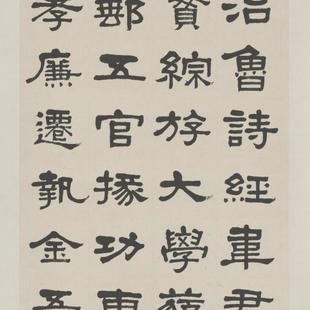 治魯詩經韋君
貫綜斿大學
郵五官掾功曹
孝廉遷執金吾